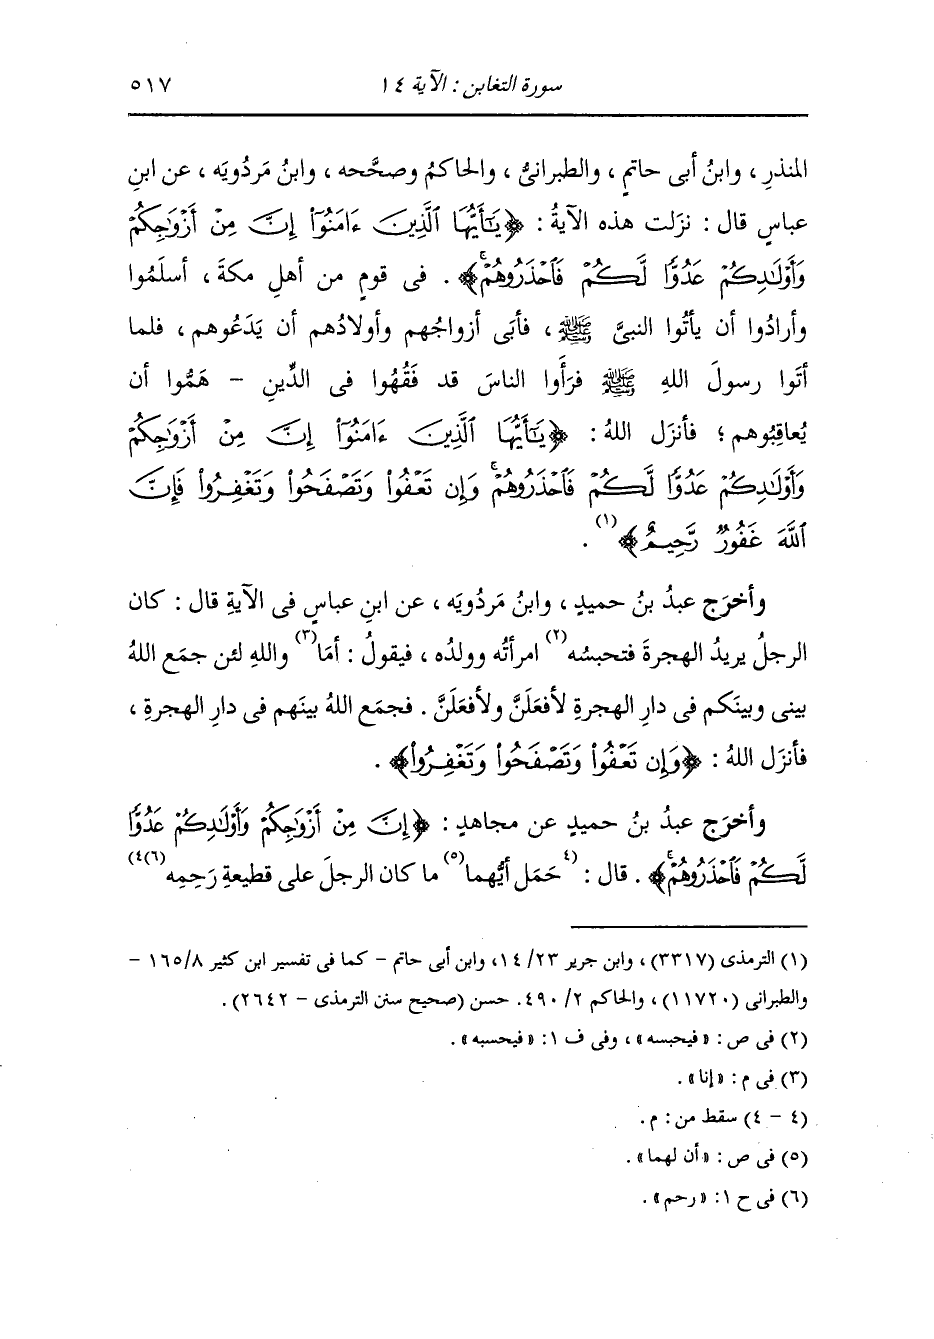 سورة التغابن : الآية ١٤ ٥١٧
المنذرِ ، وابنُ أبى حاتمٍ ، والطبرانىُّ ، والحاكمُ وصحَّحه ، وابنُ مَردُويَه ، عن ابنِ
عباسٍ قال : نزَلت هذه الآيةُ : ﴿يَٰٓأَيُّهَا ٱلَّذِينَ ءَامَنُوٓا۟ إِنَّ مِنْ أَزْوَٰجِكُمْ
وَأَوْلَٰدِكُمْ عَدُوًّا لَّكُمْ فَٱحْذَرُوهُمْ ۚ﴾ . فى قومٍ من أهلِ مكةَ ، أسلَمُوا
وأرادُوا أن يأتُوا النبىَّ ﷺ ، فأبَى أزواجُهم وأولادُهم أن يَدَعُوهم ، فلما
أتَوا رسولَ اللهِ ﷺ فرَأَوا الناسَ قد فَقُهُوا فى الدِّينِ – هَمُّوا أن
يُعاقِبُوهم ؛ فأنزَل اللهُ : ﴿يَٰٓأَيُّهَا ٱلَّذِينَ ءَامَنُوٓا۟ إِنَّ مِنْ أَزْوَٰجِكُمْ
وَأَوْلَٰدِكُمْ عَدُوًّا لَّكُمْ فَٱحْذَرُوهُمْ ۚ وَإِن تَعْفُوا۟ وَتَصْفَحُوا۟ وَتَغْفِرُوا۟ فَإِنَّ
ٱللَّهَ غَفُورٌ رَّحِيمٌ﴾(١) .
وأخرَج عبدُ بنُ حميدٍ ، وابنُ مَردُويَه ، عن ابنِ عباسٍ فى الآيةِ قال : كان
الرجلُ يريدُ الهجرةَ فتحبسُه(٢) امرأتُه وولدُه ، فيقولُ : أمَا(٣) واللهِ لئن جمَع اللهُ
بينى وبينَكم فى دارِ الهجرةِ لأفعَلَنَّ ولأفعَلَنَّ . فجمَع اللهُ بينَهم فى دارِ الهجرةِ ،
فأنزَل اللهُ : ﴿وَإِن تَعْفُوا۟ وَتَصْفَحُوا۟ وَتَغْفِرُوا۟﴾ .
وأخرَج عبدُ بنُ حميدٍ عن مجاهدٍ : ﴿إِنَّ مِنْ أَزْوَٰجِكُمْ وَأَوْلَٰدِكُمْ عَدُوًّا
لَّكُمْ فَٱحْذَرُوهُمْ ۚ﴾ . قال : (٤حَمَل أيُّهما(٥) ما كان الرجلَ على قطيعةِ رَحِمِه(٦)٤)
(١) الترمذى (٣٣١٧) ، وابن جرير ٢٣/ ١٤، وابن أبى حاتم – كما فى تفسير ابن كثير ٨/١٦٥ –
والطبرانى (١١٧٢٠) ، والحاكم ٢/ ٤٩٠. حسن (صحيح سنن الترمذى – ٢٦٤٢) .
(٢) فى ص : «فيحبسه» ، وفى ف ١: «فيحسبه» .
(٣) فى م : «إنا» .
(٤ – ٤) سقط من : م .
(٥) فى ص : «أن لهما» .
(٦) فى ح ١: «رحم» .